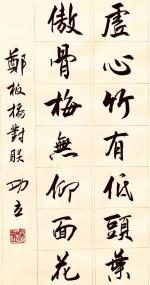 虛心竹有低頭葉
傲骨梅無仰面花
鄭板橋對联 功立